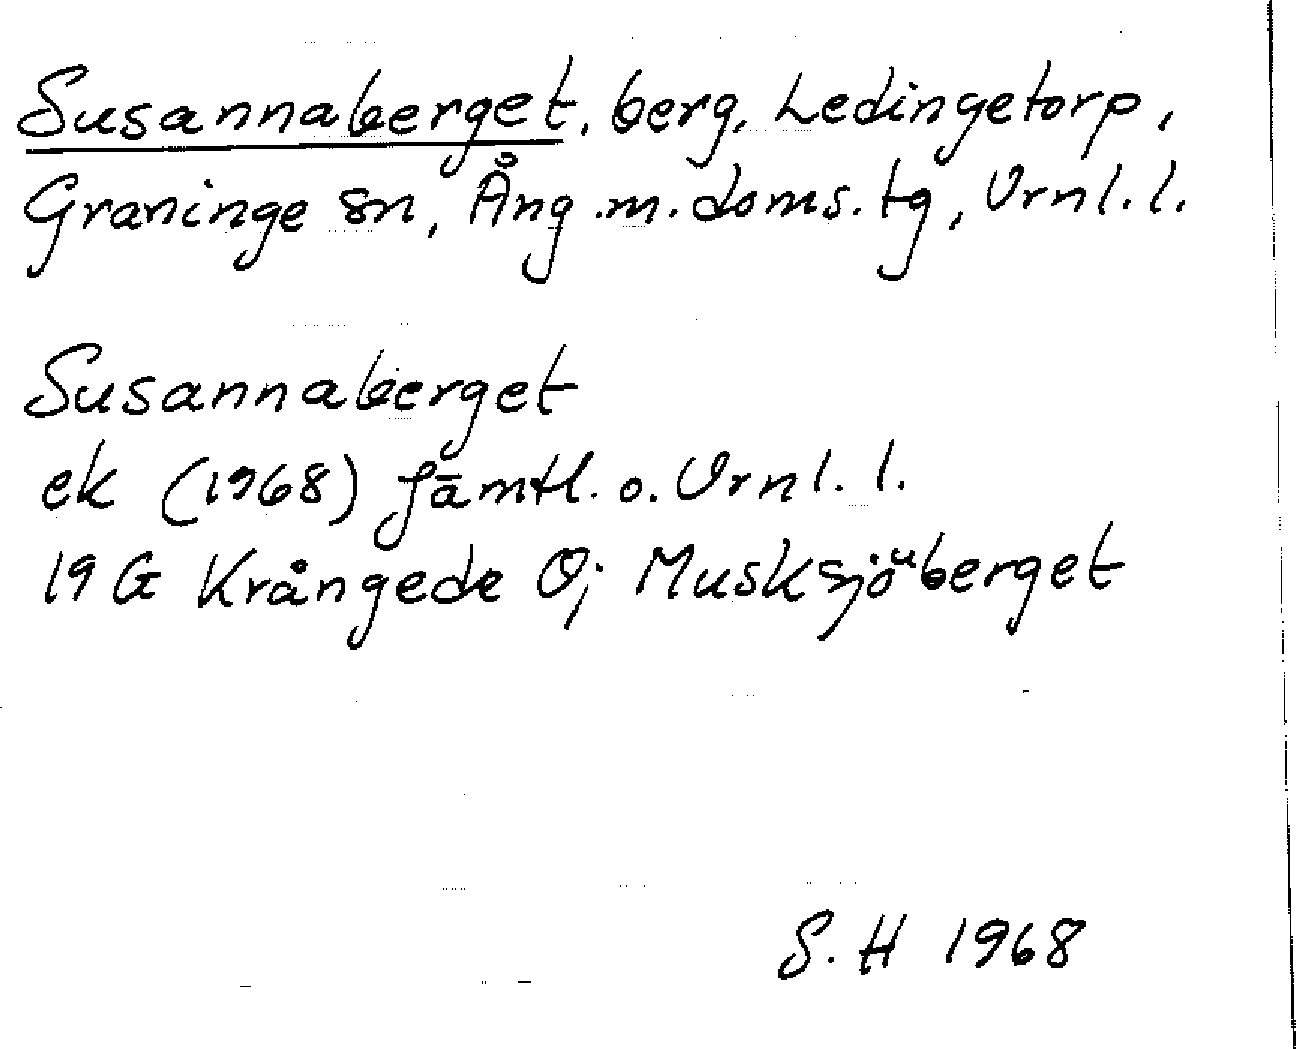 Susannaberget, berg, Ledingetorp,
Graninge sn, Ång.m.doms.tg, Vrnl.l.
Susannaberget
ek (1968) Jämtl. o. Vrnl. l.
19 G Krångede O; Musksjöberget
S. H 1968